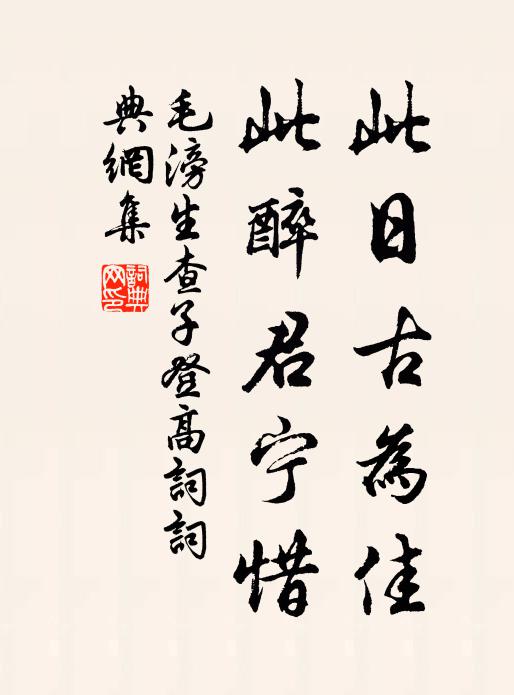 此日古為佳
此醉君宁惜
毛滂生查子登高詞詞
典網集
詞典
网印